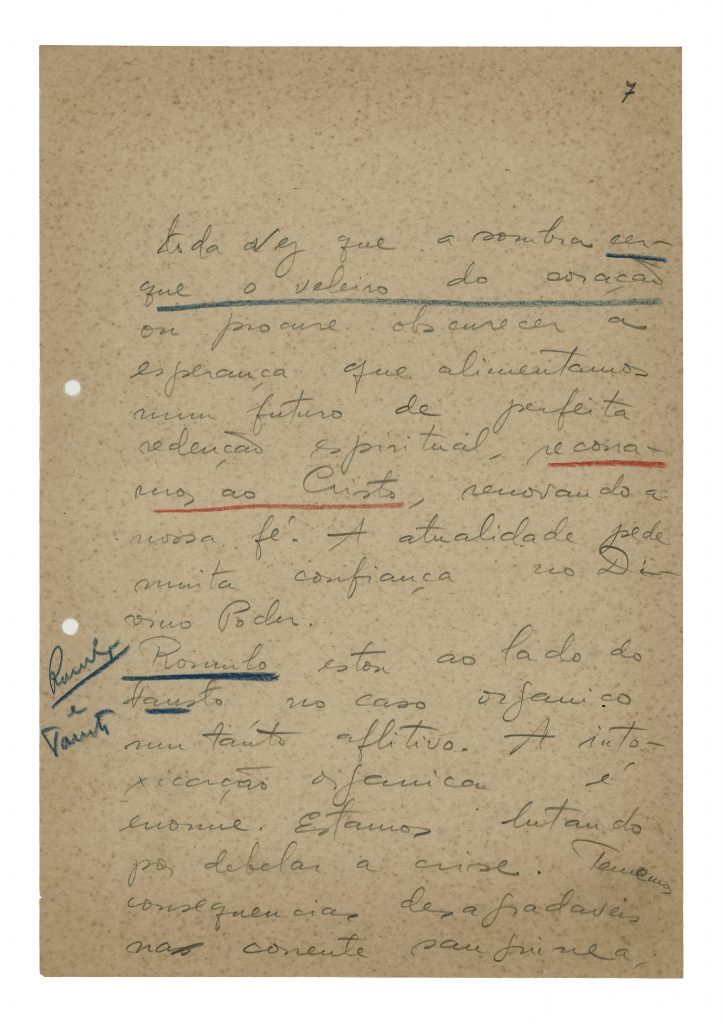 7
toda vez que a sombra cer-
que o veleiro do coração
ou procure obscurecer a
esperança que alimentamos
num futuro de perfeita
redenção espiritual, recorra-
mos ao Cristo, renovando a
nossa fé. A atualidade pede
muita confiança no Di-
vino Poder.
Romulo estou ao lado do
Fausto no caso organico
num tanto aflitivo. A into-
xicação organica é
enorme. Estamos lutando
por debelar a crise. Tememos
consequencias desagradaveis
na corrente sanguinea,
Romulo
e
Fausto